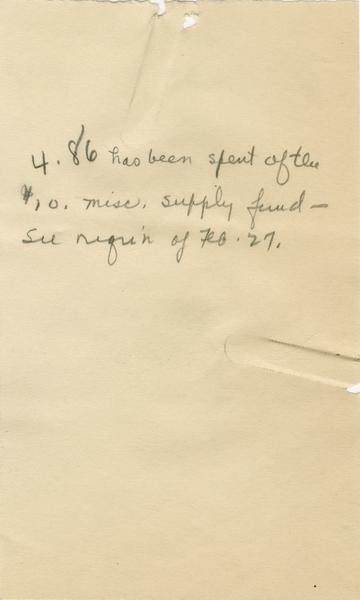 4.86 has been spent of the
$10. misc. supply fund –
See req'n of Feb. 27.